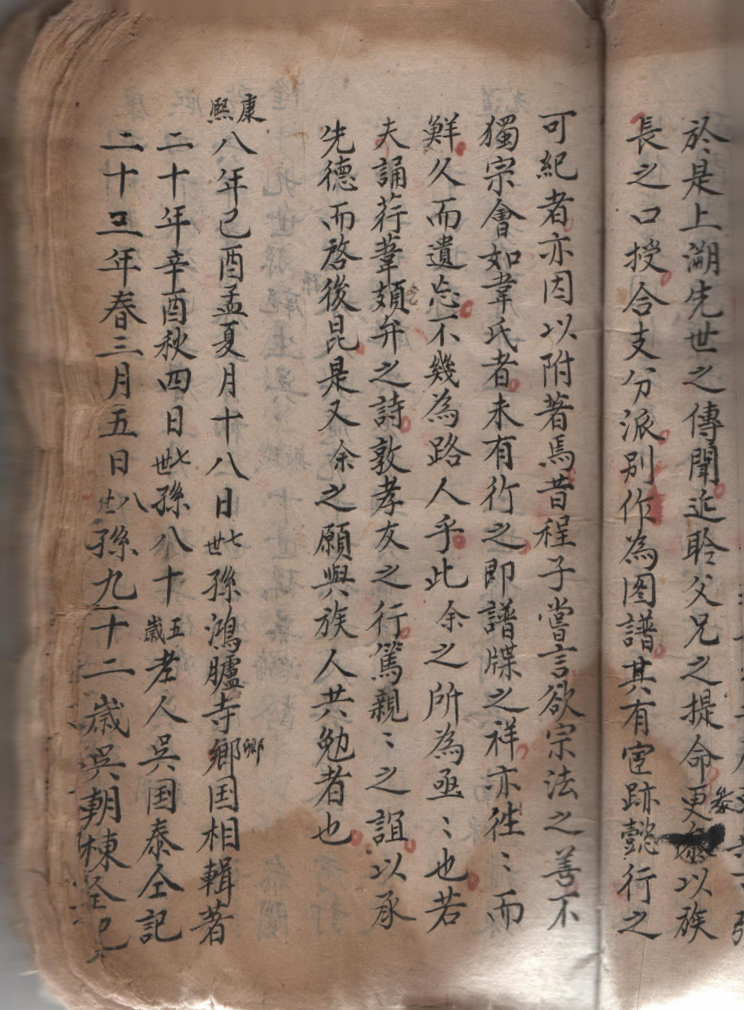 於是上溯先世之傳聞近聆父兄之提命更參以族
長之口授合支分派別作為图譜其有宦跡懿行之
可紀者亦因以附著焉昔程子嘗言欲宗法之善不
獨宗會如韋氏者未有行之即譜牒之祥亦徃〻而
鮮久而遺忘不幾為路人乎此余之所為亟〻也若
夫誦荇葦頍弁之詩敦孝友之行篤親〻之誼以承
先德而啓後昆是又余之願與族人共勉者也
康熙八年己酉孟夏月十八日七世孫鴻臚寺鄉囯相輯著
二十年辛酉秋四日七世孫八十五歲老人吳囯泰仝記
二十三年春三月五日八世孫九十二歲吳朝棟仝記